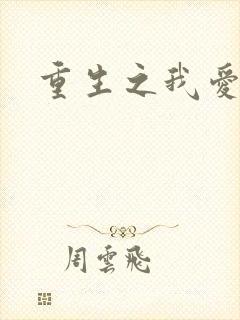 重生之我愛
周雲飛